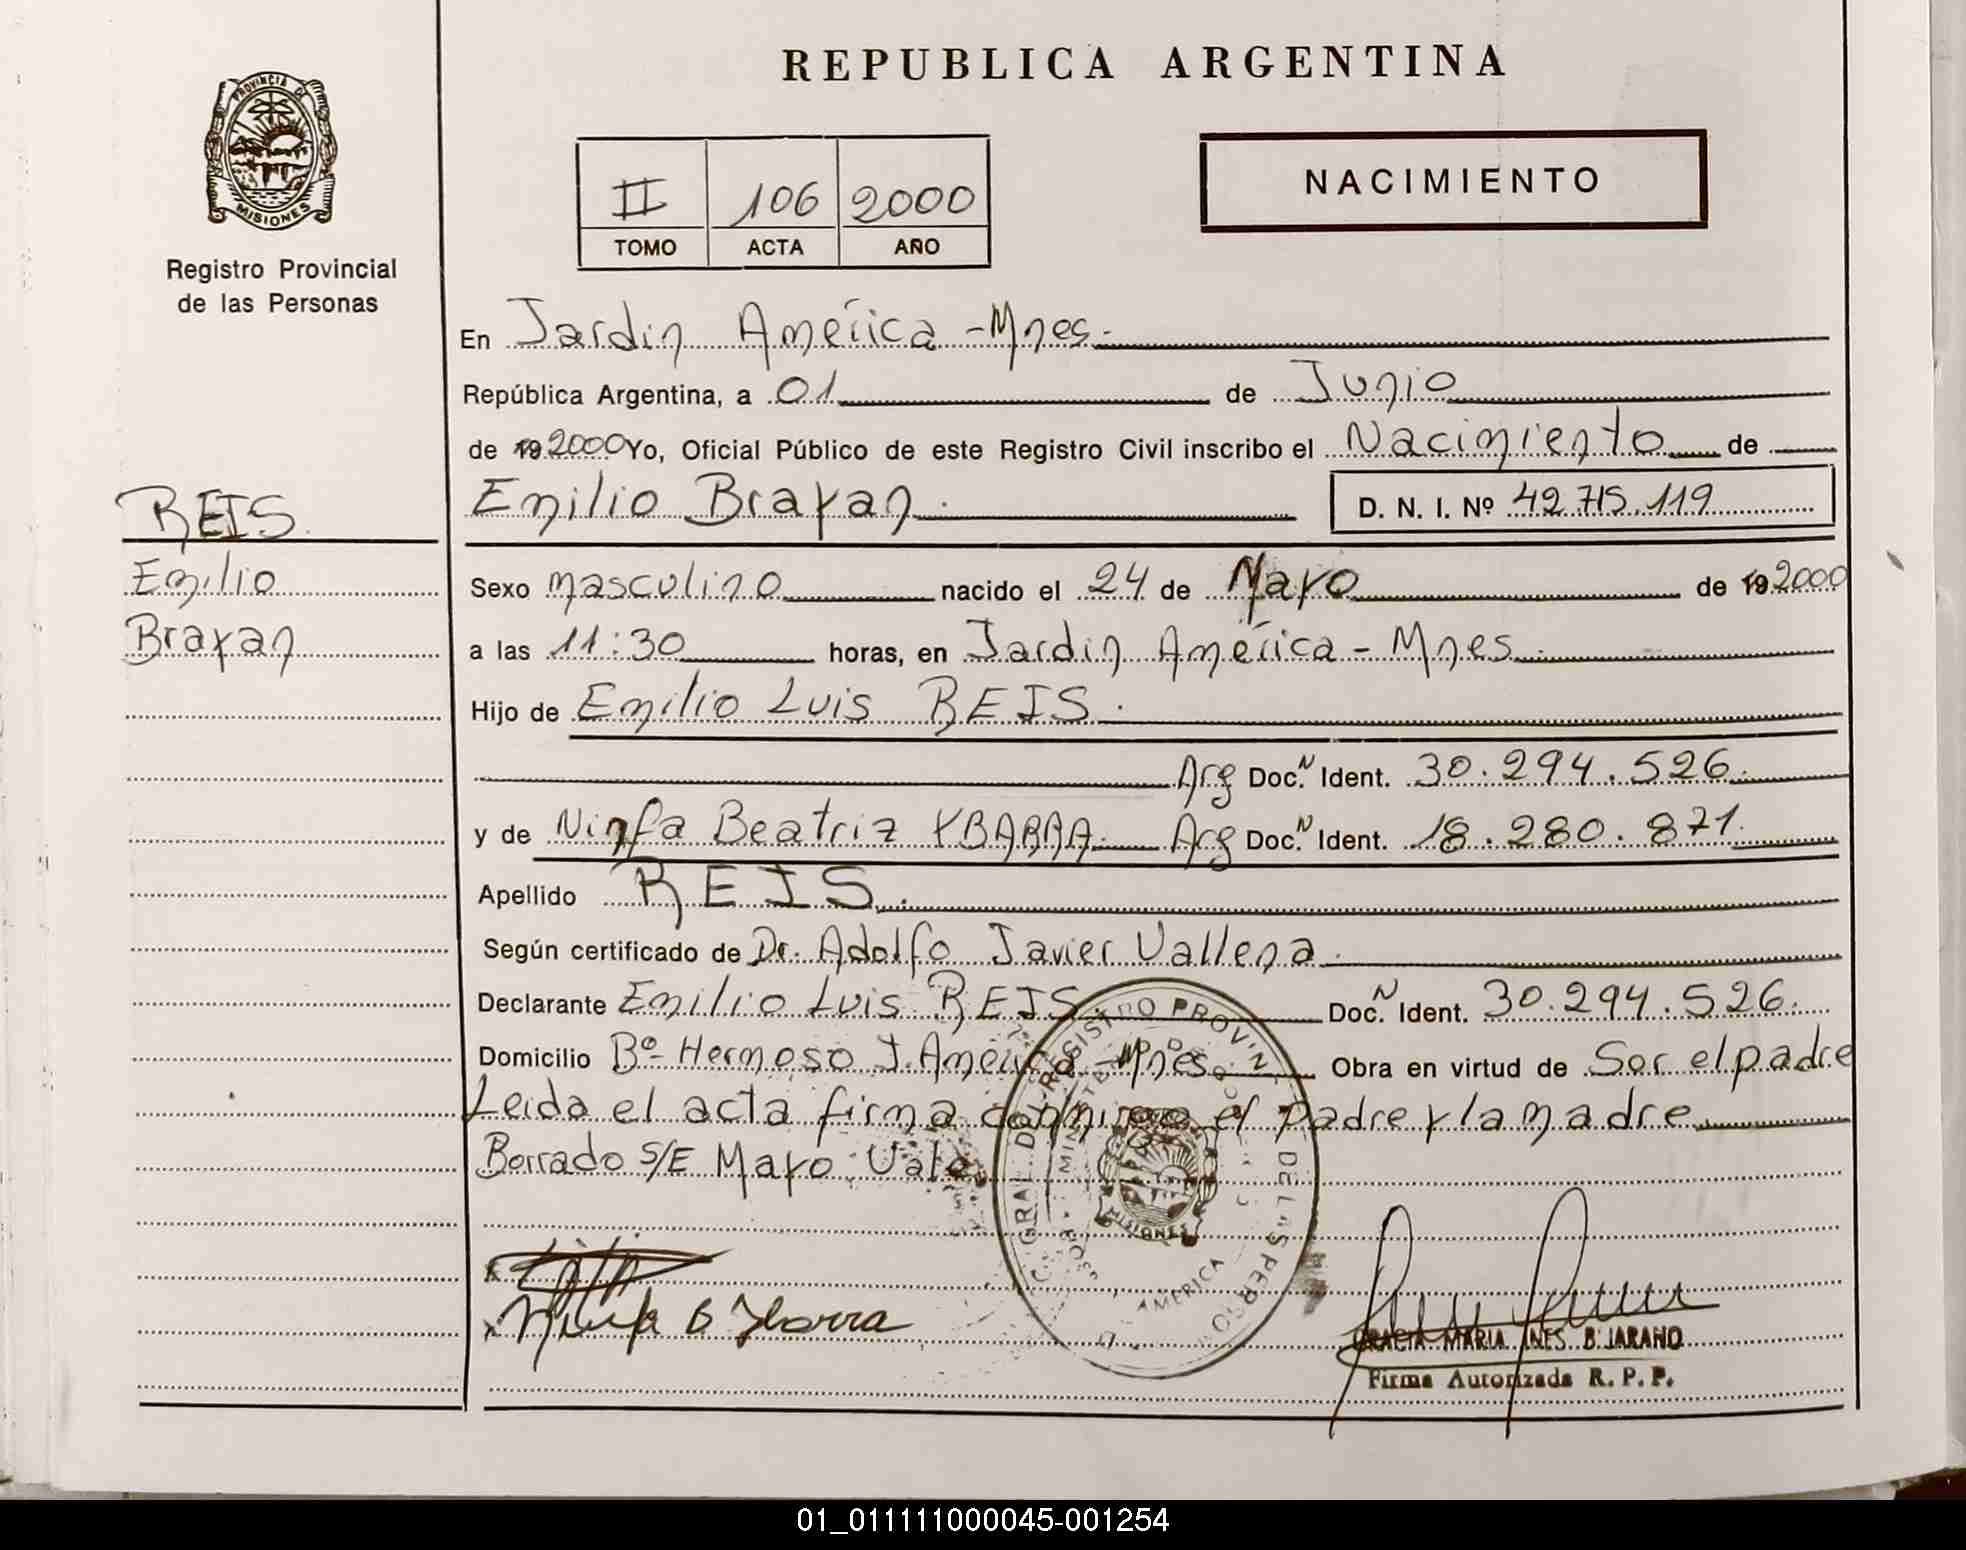 REPUBLICA ARGENTINA
PROVINCIA DE
MISIONES
Registro Provincial
de las Personas
II 106 2000
TOMO ACTA AÑO
NACIMIENTO
En Jardin América - Mnes.
República Argentina, a 01 de Junio
de 19 2000 Yo, Oficial Público de este Registro Civil inscribo el Nacimiento de
Emilio Brayan. D. N. I. Nº 42.715.119
REIS.
Emilio
Brayan
Sexo masculino nacido el 24 de Mayo de 19 2000
a las 11:30 horas, en Jardin América - Mnes.
Hijo de Emilio Luis REIS.
Arg Doc. N Ident. 30.294.526.
y de Ninfa Beatriz YBARRA. Arg Doc. N Ident. 18.280.871.
Apellido REIS.
Según certificado de Dr. Adolfo Javier Vallena.
Declarante Emilio Luis REIS. Doc. N Ident. 30.294.526.
Domicilio Bº Hermoso J. América - Mnes. Obra en virtud de Ser el padre
Leida el acta firma conmigo el padre y la madre
Borrado S/E Mayo Vale
REGISTRO PROVIN. DE LAS PERSON
MISIONES
AMERICA
x
x Ninfa B Ybarra
GRACIA MARIA INES BEJARANO
Firma Autorizada R. P. P.
01_011111000045-001254